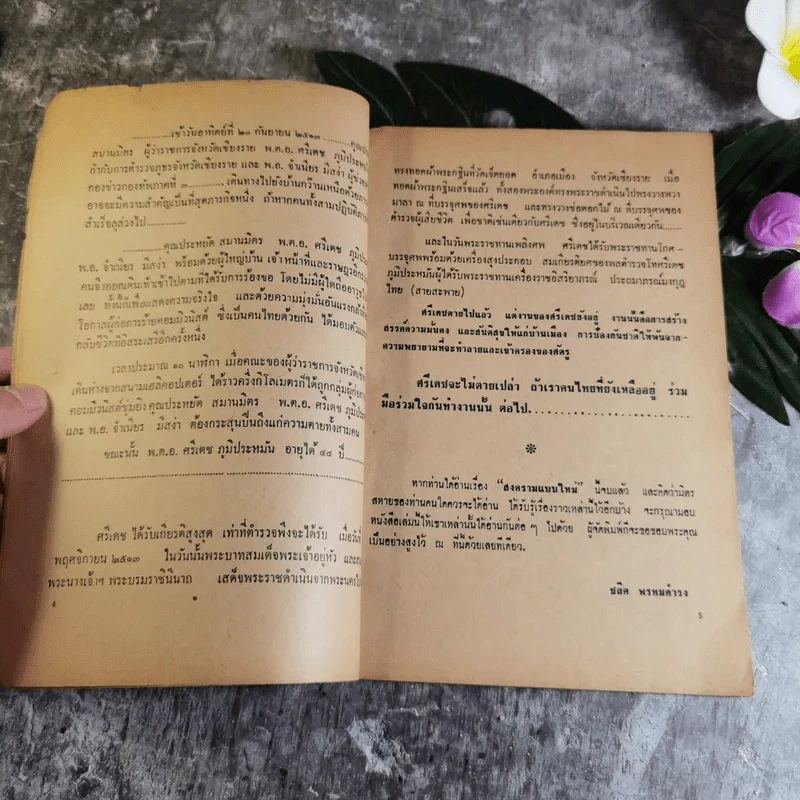 ..............เช้าวันอาทิตย์ที่ ๒๐ กันยายน ๒๕๑๓
สมานมิตร ผู้ว่าราชการจังหวัดเชียงราย พ.ต.อ. ศรีเดช ภูมิประหมัน
กำกับการตำรวจภูธรจังหวัดเชียงราย และ พ.อ. จำเนียร มีสง่า
กองข่าวกองทัพภาคที่ ๓ ............เดินทางไปยังบ้าน
อาจจะมีความสำคัญเป็นที่สุดภารกิจหนึ่ง ถ้าหากคนทั้งสามปฏิบัติ
สำเร็จลุล่วงไป...............
..................คุณประหยัด สมานมิตร พ.ต.อ. ศรีเดช
พ.อ. จำเนียร มีสง่า พร้อมด้วยผู้ใหญ่บ้าน เจ้าหน้าที่และราษฎร
คน จึงออกเดินเท้าเข้าไปตามที่ได้รับการร้องขอ โดยไม่มีผู้ใดถืออาวุธ
เลย ทั้งนี้เพื่อแสดงความจริงใจ และด้วยความมุ่งมั่นอันแรงกล้า
โอกาสผู้ก่อการร้ายคอมมิวนิสต์ ซึ่งเป็นคนไทยด้วยกัน ได้มอบตัว
กลับชีวิตที่อิสระเสรีอีกครั้งหนึ่ง
เวลาประมาณ ๑๐ นาฬิกา เมื่อคณะของผู้ว่าราชการจังหวัด
เดินห่างจากสนามเฮลิคอปเตอร์ ได้ราวครึ่งกิโลเมตรก็ได้ถูกกลุ่มผู้ก่อ
คอมมิวนิสต์ซุ่มยิง คุณประหยัด สมานมิตร พ.ต.อ. ศรีเดช
และ พ.อ. จำเนียร มีสง่า ต้องกระสุนปืนถึงแก่ความตายทั้งสามคน
ขณะนั้น พ.ต.อ. ศรีเดช ภูมิประหมัน อายุได้ ๔๔ ปี
ศรีเดช ได้รับเกียรติสูงสุด เท่าที่ตำรวจพึงจะได้รับ
พฤศจิกายน ๒๕๑๓ ในวันนั้นพระบาทสมเด็จพระเจ้าอยู่หัว และ
พระนางเจ้าฯ พระบรมราชินีนาถ เสด็จพระราชดำเนินจากพระนคร
4
ทรงทอดผ้าพระกฐินที่วัดเจ็ดยอด อำเภอเมือง จังหวัดเชียงราย เมื่อ
ทอดผ้าพระกฐินเสร็จแล้ว ทั้งสองพระองค์ทรงพระราชดำเนินไปทรงวางพวง
มาลา ณ ที่บรรจุศพของศรีเดช และทรงวางช่อดอกไม้ ณ ที่บรรจุศพของ
ตำรวจผู้เสียชีวิต เพื่อชาติเช่นเดียวกับศรีเดช ซึ่งอยู่ในบริเวณเดียวกัน......
และในวันพระราชทานเพลิงศพ ศรีเดชได้รับพระราชทานโกศ-
บรรจุศพพร้อมด้วยเครื่องสูงประกอบ สมเกียรติยศของพลตำรวจโทศรีเดช
ภูมิประหมันผู้ได้รับพระราชทานเครื่องราชอิสริยาภรณ์ ประถมาภรณ์มงกุฎ
ไทย (สายสะพาย)
ศรีเดชตายไปแล้ว แต่งานของศรีเดชยังอยู่ งานนี้คือสารสร้าง
สรรค์ความมั่นคง และสันติสุขให้แก่บ้านเมือง การป้องกันชาติให้พ้นจาก-
ความพยายามที่จะทำลายและเข้าครองของศัตรู
ศรีเดชจะไม่ตายเปล่า ถ้าเราคนไทยที่ยังเหลืออยู่ ร่วม
มือร่วมใจกันทำงานนั้น ต่อไป........................
*
หากท่านได้อ่านเรื่อง “สงครามแบบใหม่” นี้จบแล้ว และคิดว่ามิตร
สหายของท่านคนใดควรจะได้อ่าน ได้รับรู้เรื่องราวเหล่านี้ไว้อีกบ้าง จะกรุณามอบ
หนังสือเล่มนี้ให้เขาเหล่านั้นได้อ่านกันต่อ ๆ ไปด้วย ผู้จัดพิมพ์ก็จะขอขอบพระคุณ
เป็นอย่างสูงไว้ ณ ที่นี้ด้วยเลยทีเดียว.
ชลิต พรหมดำรง
5